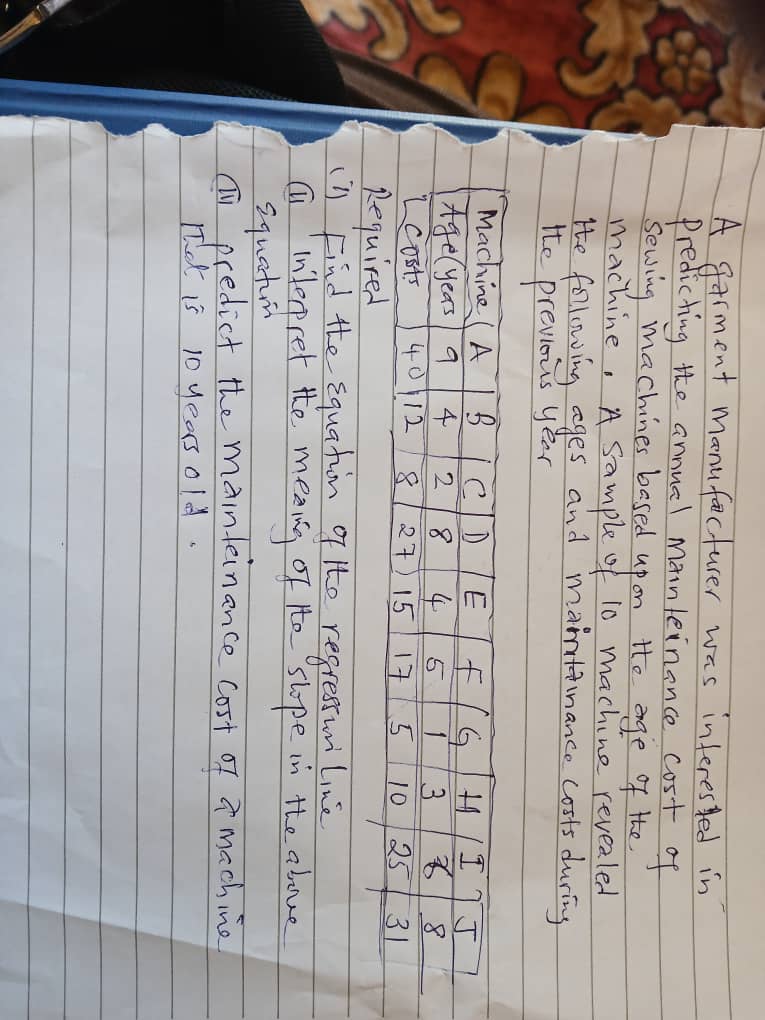 A garment manufacturer was interested in
predicting the annual mainteinance cost of
sewing machines based upon the age of the
machine. A sample of 10 machine revealed
the following ages and maintainance costs during
the previous year
Machine A B C D E F G H I J
Age(years 9 4 2 8 4 5 1 3 8
Costs 40 12 8 27 15 17 5 10 25 31
Required
i) Find the equation of the regression line
ii) Interpret the meaing of the slope in the above
equation
iii) predict the mainteinance cost of a machine
that is 10 years old.